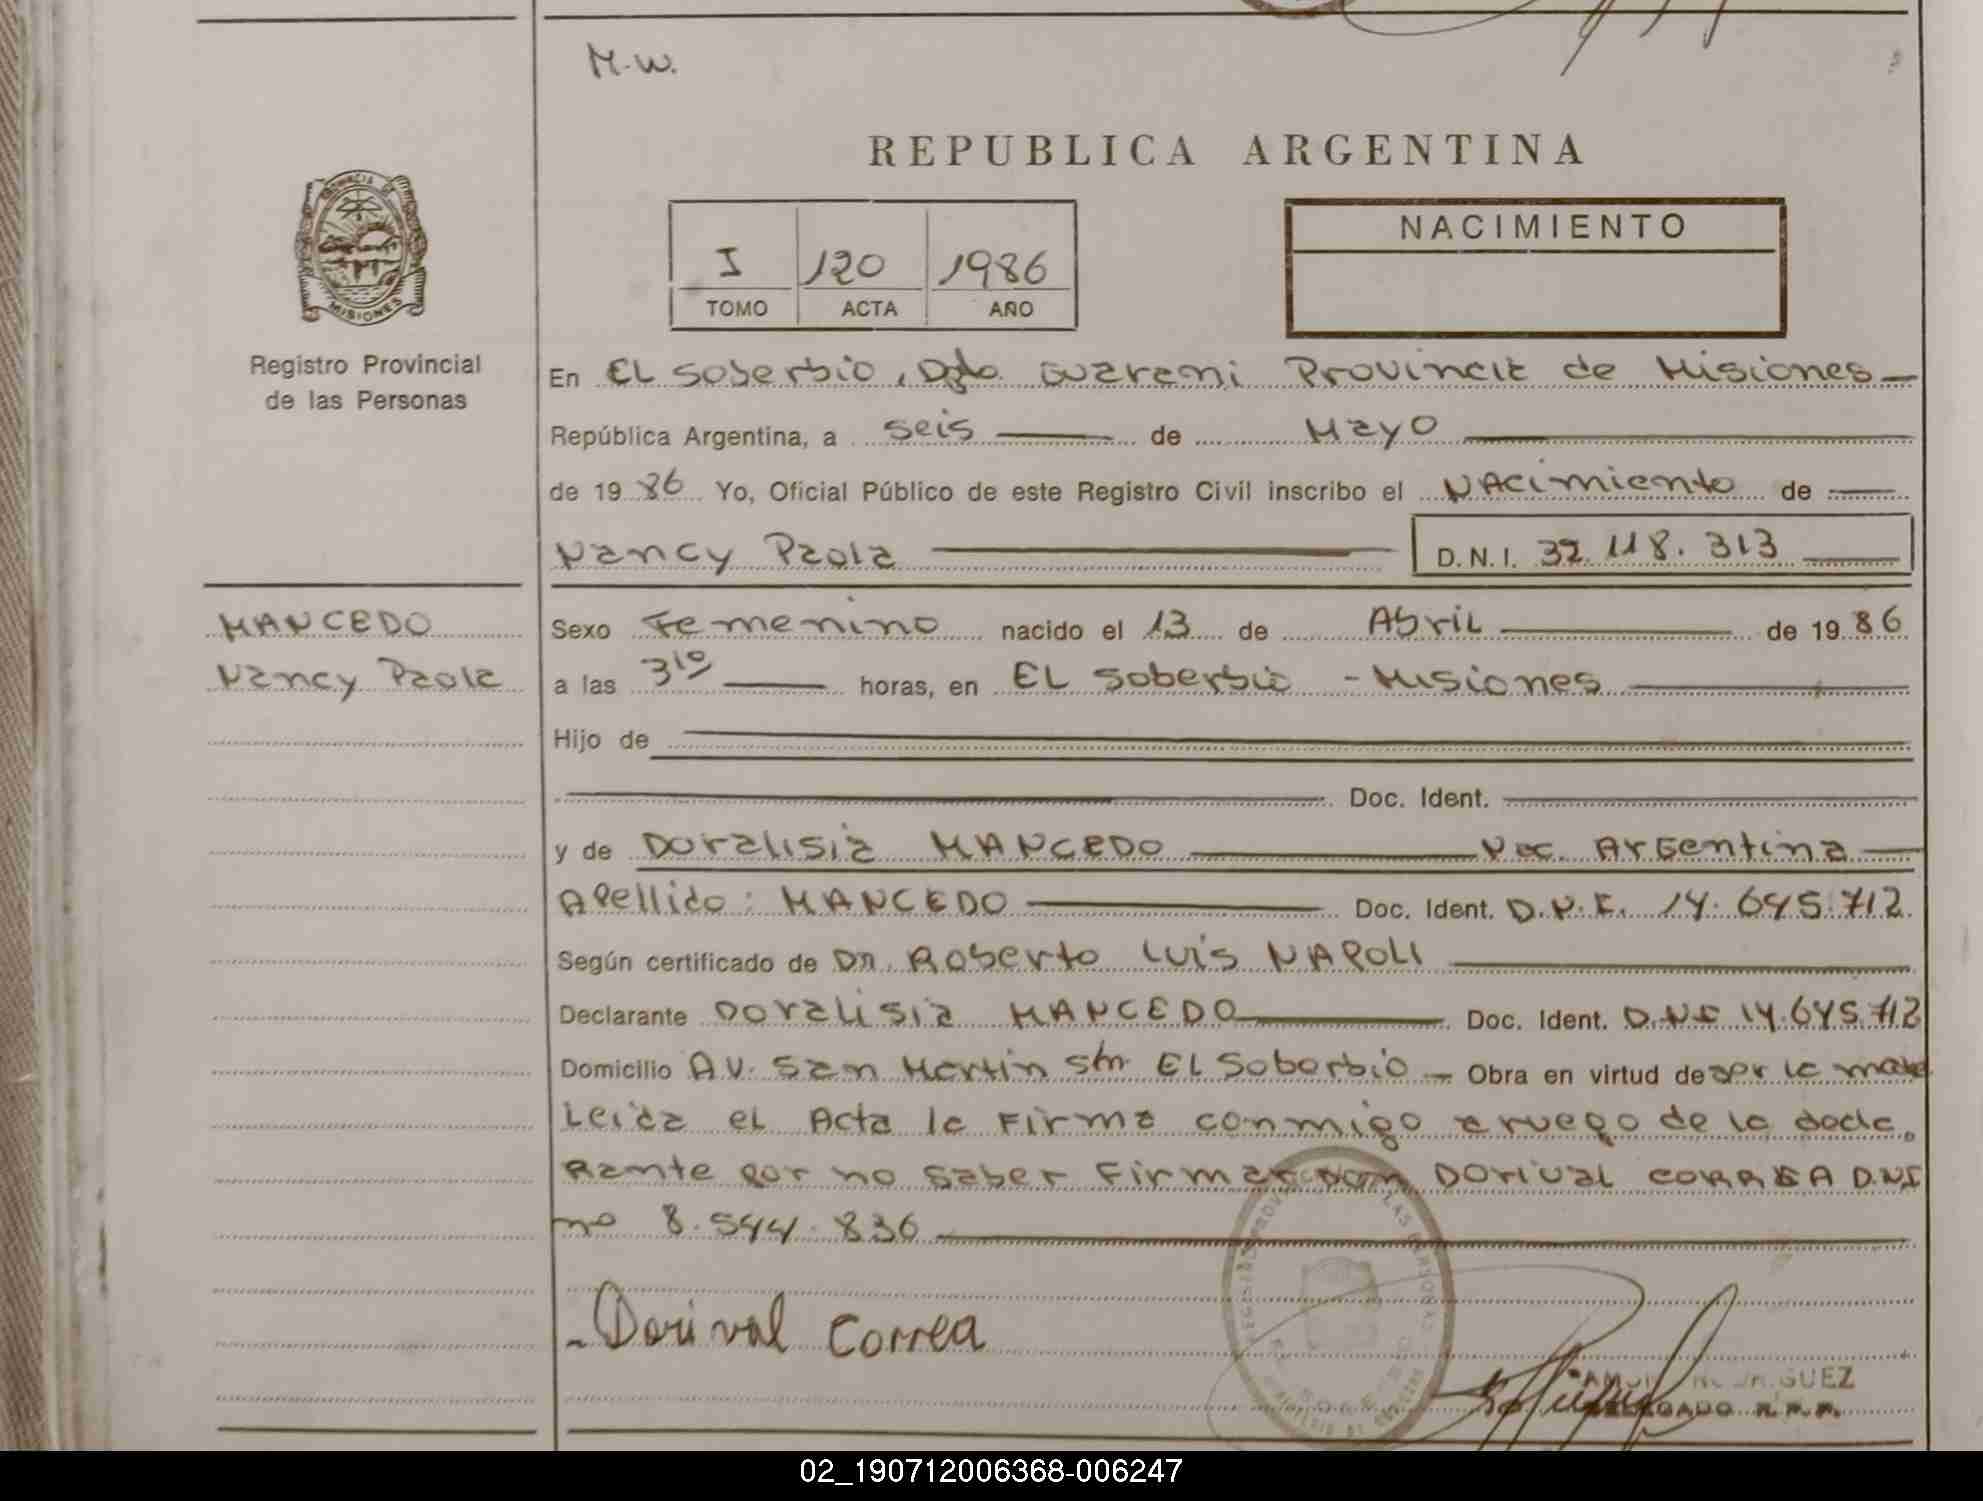 M.W.
REPUBLICA ARGENTINA
I 120 1986
TOMO ACTA AÑO
NACIMIENTO
PROVINCIA DE
MISIONES
Registro Provincial
de las Personas
En EL Soberbio, Dpto. Guarani Provincia de Misiones
República Argentina, a seis de Mayo
de 19 86 Yo, Oficial Público de este Registro Civil inscribo el NACimiento de
Nancy Paola D.N.I. 32.118.313
MANCEDO
Nancy Paola
Sexo Femenino nacido el 13 de Abril de 19 86
a las 310 horas, en EL Soberbio - Misiones
Hijo de
Doc. Ident.
y de Doralisia MANCEDO Nac. Argentina
Apellido: MANCEDO Doc. Ident. D.N.I. 14.645.712
Según certificado de Dr. Roberto Luis NAPOLI
Declarante Doralisia MANCEDO Doc. Ident. D.N.I 14.645.712
Domicilio AV. San Martin s/n. EL Soberbio - Obra en virtud de ser la madre
Leida el Acta la Firma conmigo a ruego de la decla
Rante por no saber Firmar Don DORIVAL CORREA D.N.I
no 8.544.836
Dorival Correa
RODRIGUEZ
DELEGADO R.P.P.
02_190712006368-006247